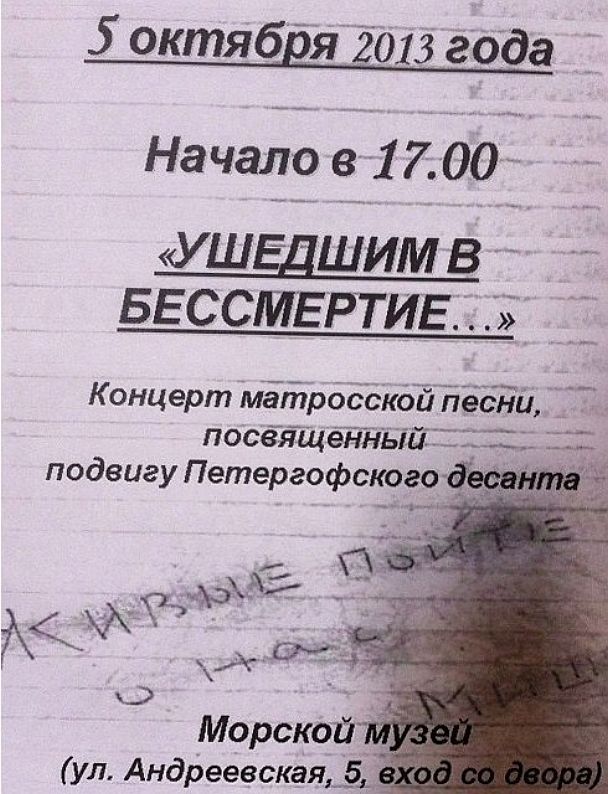 5 октября 2013 года
Начало в 17.00
«УШЕДШИМ В
БЕССМЕРТИЕ...»
Концерт матросской песни,
посвященный
подвигу Петергофского десанта
ЖИВЫЕ ПОЙТЕ
о нас
Морской музей
(ул. Андреевская, 5, вход со двора)